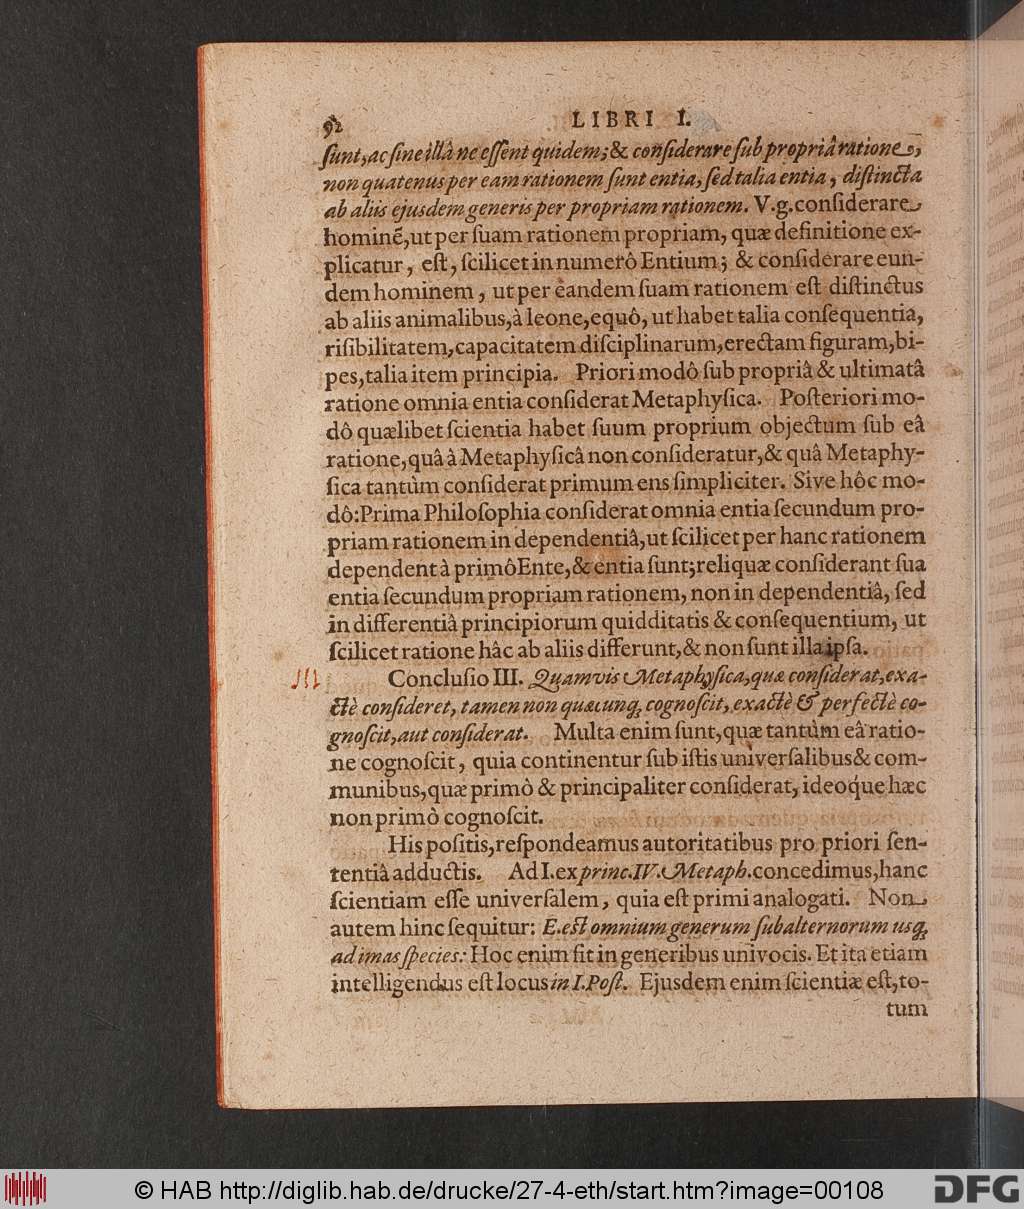 92
LIBRI I.
ſunt, ac ſine illâ ne eſſent quidem; & conſiderare ſub propriâ ratione,
non quatenus per eam rationem ſunt entia, ſed talia entia, diſtincta
ab aliis ejusdem generis per propriam rationem. V.g. conſiderare
hominẽ, ut per ſuam rationem propriam, quæ definitione ex-
plicatur, eſt, ſcilicet in numerô Entium; & conſiderare eun-
dem hominem, ut per eandem ſuam rationem eſt diſtinctus
ab aliis animalibus, à leone, equô, ut habet talia conſequentia,
riſibilitatem, capacitatem diſciplinarum, erectam figuram, bi-
pes, talia item principia. Priori modô ſub propriâ & ultimatâ
ratione omnia entia conſiderat Metaphyſica. Poſteriori mo-
dô quælibet ſcientia habet ſuum proprium objectum ſub eâ
ratione, quâ à Metaphyſicâ non conſideratur, & quâ Metaphy-
ſica tantùm conſiderat primum ens ſimpliciter. Sive hôc mo-
dô: Prima Philoſophia conſiderat omnia entia ſecundum pro-
priam rationem in dependentiâ, ut ſcilicet per hanc rationem
dependent à primô Ente, & entia ſunt; reliquæ conſiderant ſua
entia ſecundum propriam rationem, non in dependentiâ, ſed
in differentiâ principiorum quidditatis & conſequentium, ut
ſcilicet ratione hâc ab aliis differunt, & non ſunt illa ipſa.
III Concluſio III. Quamvis Metaphyſica, quæ conſiderat, exa-
ctè conſideret, tamen non quæcunq; cognoſcit, exactè & perfectè co-
gnoſcit, aut conſiderat. Multa enim ſunt, quæ tantùm eâ ratio-
ne cognoſcit, quia continentur ſub iſtis univerſalibus & com-
munibus, quæ primò & principaliter conſiderat, ideoque hæc
non primò cognoſcit.
His poſitis, reſpondeamus autoritatibus pro priori ſen-
tentiâ adductis. Ad I. ex princ. IV. Metaph. concedimus, hanc
ſcientiam eſſe univerſalem, quia eſt primi analogati. Non
autem hinc ſequitur: E. eſt omnium generum ſubalternorum usq;
ad imas ſpecies: Hoc enim fit in generibus univocis. Et ita etiam
intelligendus eſt locus in I. Poſt. Ejusdem enim ſcientiæ eſt, to-
tum
© HAB http://diglib.hab.de/drucke/27-4-eth/start.htm?image=00108
DFG